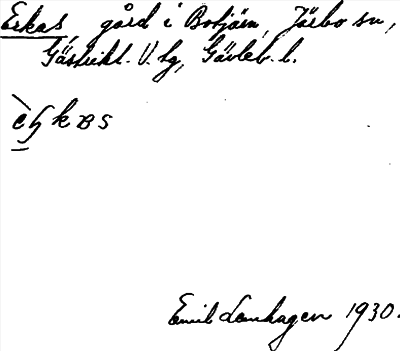 Erkas, gård i Botjärn, Järbo sn,
Gästrikl. V. tg, Gävleb. l.
Emil Lenhagen 1930.